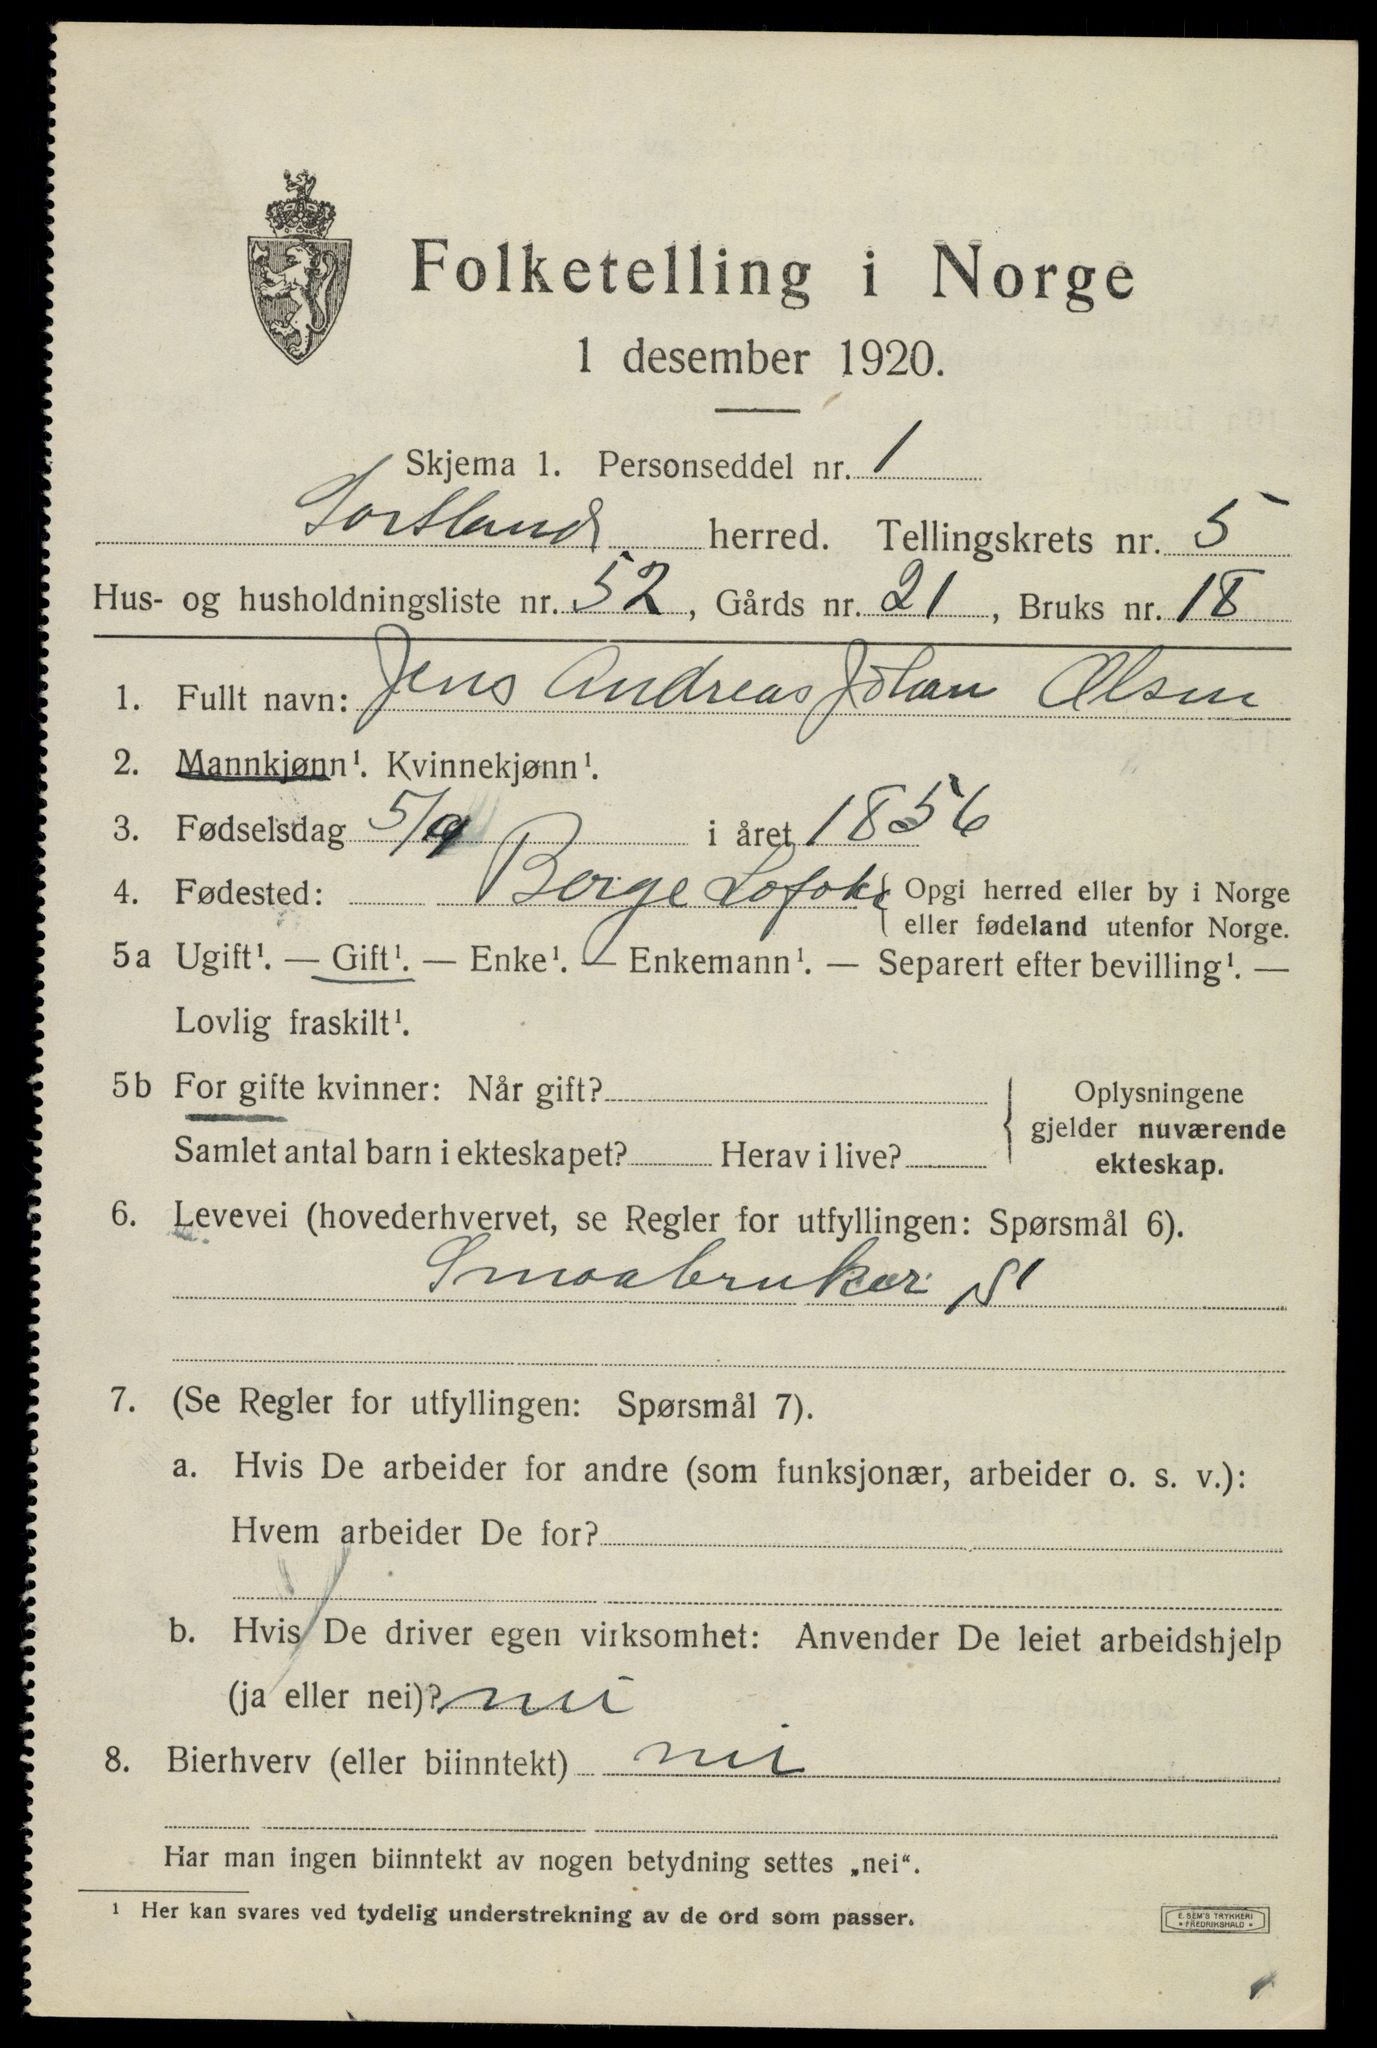 Folketelling i Norge
1 desember 1920.
Skjema 1. Personseddel nr. 1
Sortland herred. Tellingskrets nr. 5
Hus- og husholdningsliste nr. 52, Gårds nr. 21, Bruks nr. 18
1. Fullt navn: Jens Andreas Johan Olsen
2. Mannkjønn¹. Kvinnekjønn¹.
3. Fødselsdag 5/9 i året 1856
4. Fødested: Borge Lofote { Opgi herred eller by i Norge
eller fødeland utenfor Norge.
5a Ugift¹. — Gift¹. — Enke¹. — Enkemann¹. — Separert efter bevilling¹. —
Lovlig fraskilt¹.
5b For gifte kvinner: Når gift?
Samlet antal barn i ekteskapet? Herav i live?
Oplysningene
gjelder nuværende
ekteskap.
6. Levevei (hovederhvervet, se Regler for utfyllingen: Spørsmål 6).
Smaabruker S
7. (Se Regler for utfyllingen: Spørsmål 7).
a. Hvis De arbeider for andre (som funksjonær, arbeider o. s. v.):
Hvem arbeider De for?
b. Hvis De driver egen virksomhet: Anvender De leiet arbeidshjelp
(ja eller nei)? nei
8. Bierhverv (eller biinntekt) nei
Har man ingen biinntekt av nogen betydning settes „nei“.
¹ Her kan svares ved tydelig understrekning av de ord som passer.
E. SEM'S TRYKKERI
• FREDRIKSHALD •